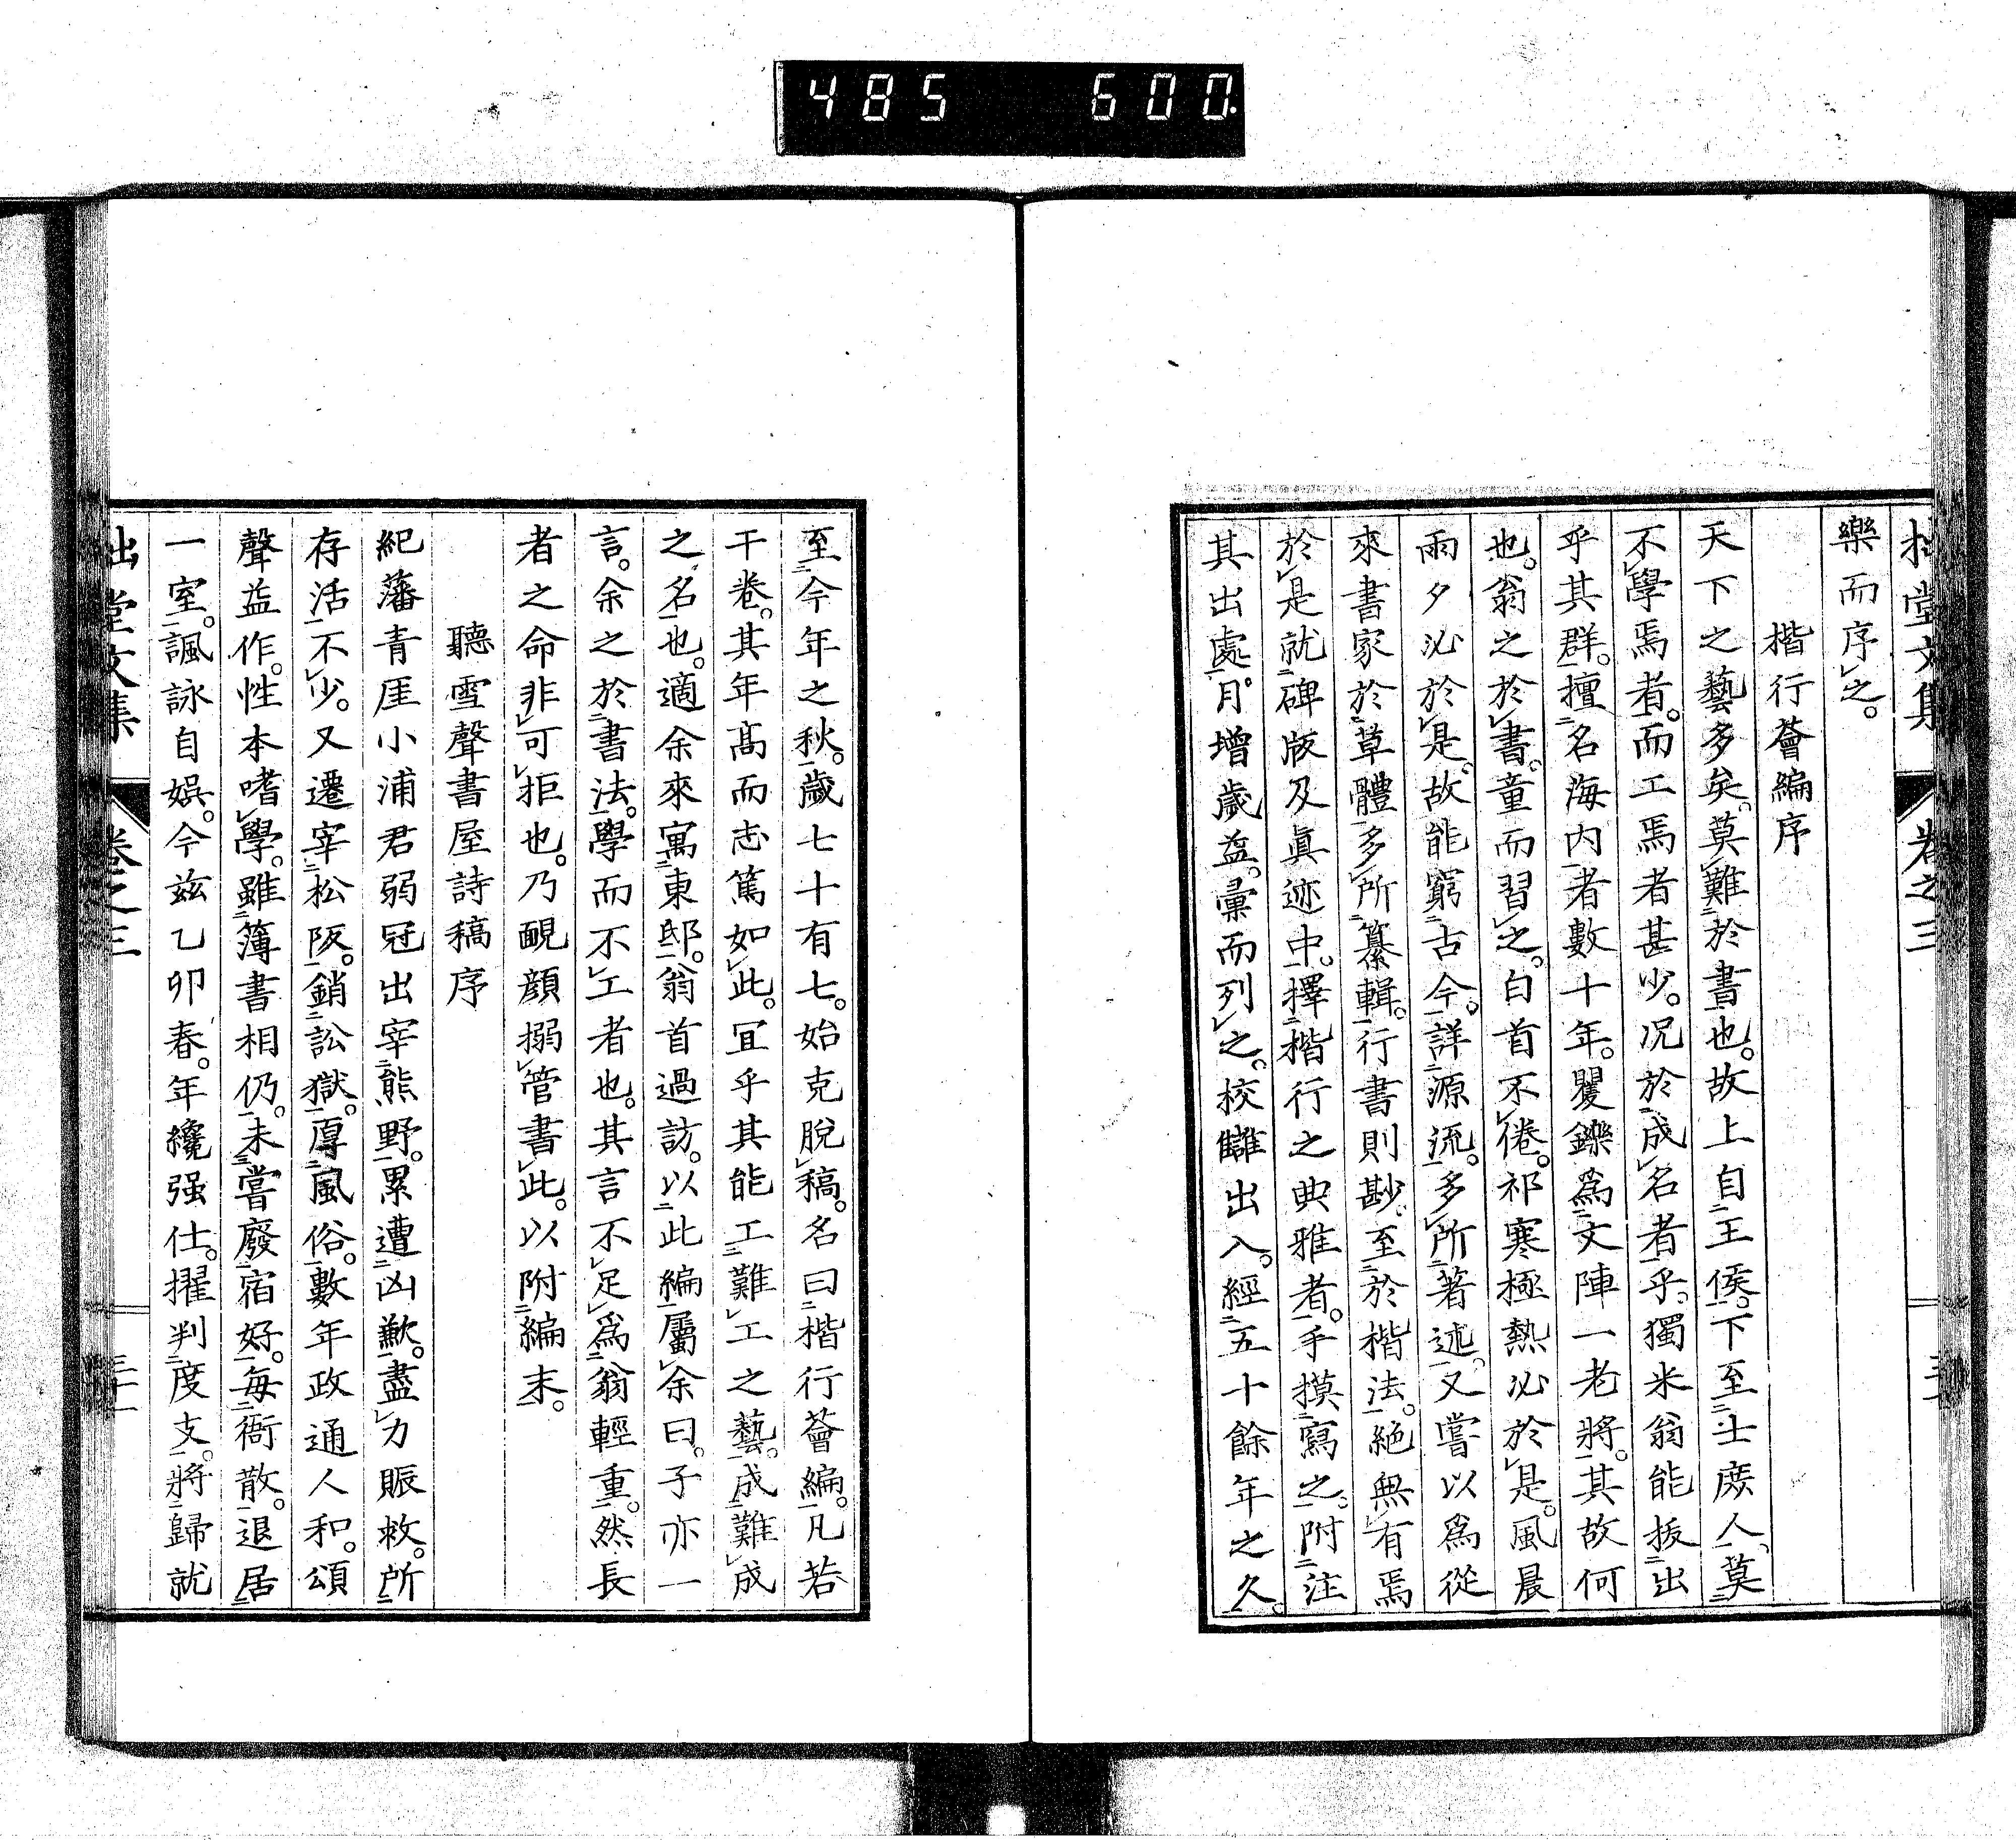 485 600.
拙堂文集 卷之三
樂而序之。
楷行薈編序
天下之藝多矣。莫難於書也。故上自王侯。下至士庶人。莫
不學焉者。而工焉者甚少。况於成名者乎。獨米翁能拔出
乎其群。擅名海內者數十年。矍鑠爲文陣一老將。其故何
也。翁之於書。童而習之。白首不倦。祁寒極熱必於是。風晨
雨夕必於是。故能窮古今。詳源流。多所著述。又嘗以爲從
來書家於草體多所纂輯。行書則尠。至於楷法。絕無有焉
於是就碑版及眞迹中。擇楷行之典雅者。手摸寫之。附注
其出處。月增歲益。彙而列之。校讎出入。經五十餘年之久。
至今年之秋。歲七十有七。始克脫稿。名曰楷行薈編。凡若
干卷。其年高而志篤如此。宜乎其能工難工之藝。成難成
之名也。適余來寓東邸。翁首過訪。以此編屬余曰。子亦一
言。余之於書法。學而不工者也。其言不足爲翁輕重。然長
者之命非可拒也。乃靦顔搦管書此。以附編末。
聽雪聲書屋詩稿序
紀藩青厓小浦君弱冠出宰熊野。累遭凶歉。盡力賑救。所
存活不少。又遷宰松阪。銷訟獄。厚風俗。數年政通人和。頌
聲益作。性本嗜學。雖簿書相仍。未嘗廢宿好。每衙散。退居
一室。諷詠自娯。今茲乙卯春。年纔强仕。擢判度支。將歸就
拙堂文集 卷之三